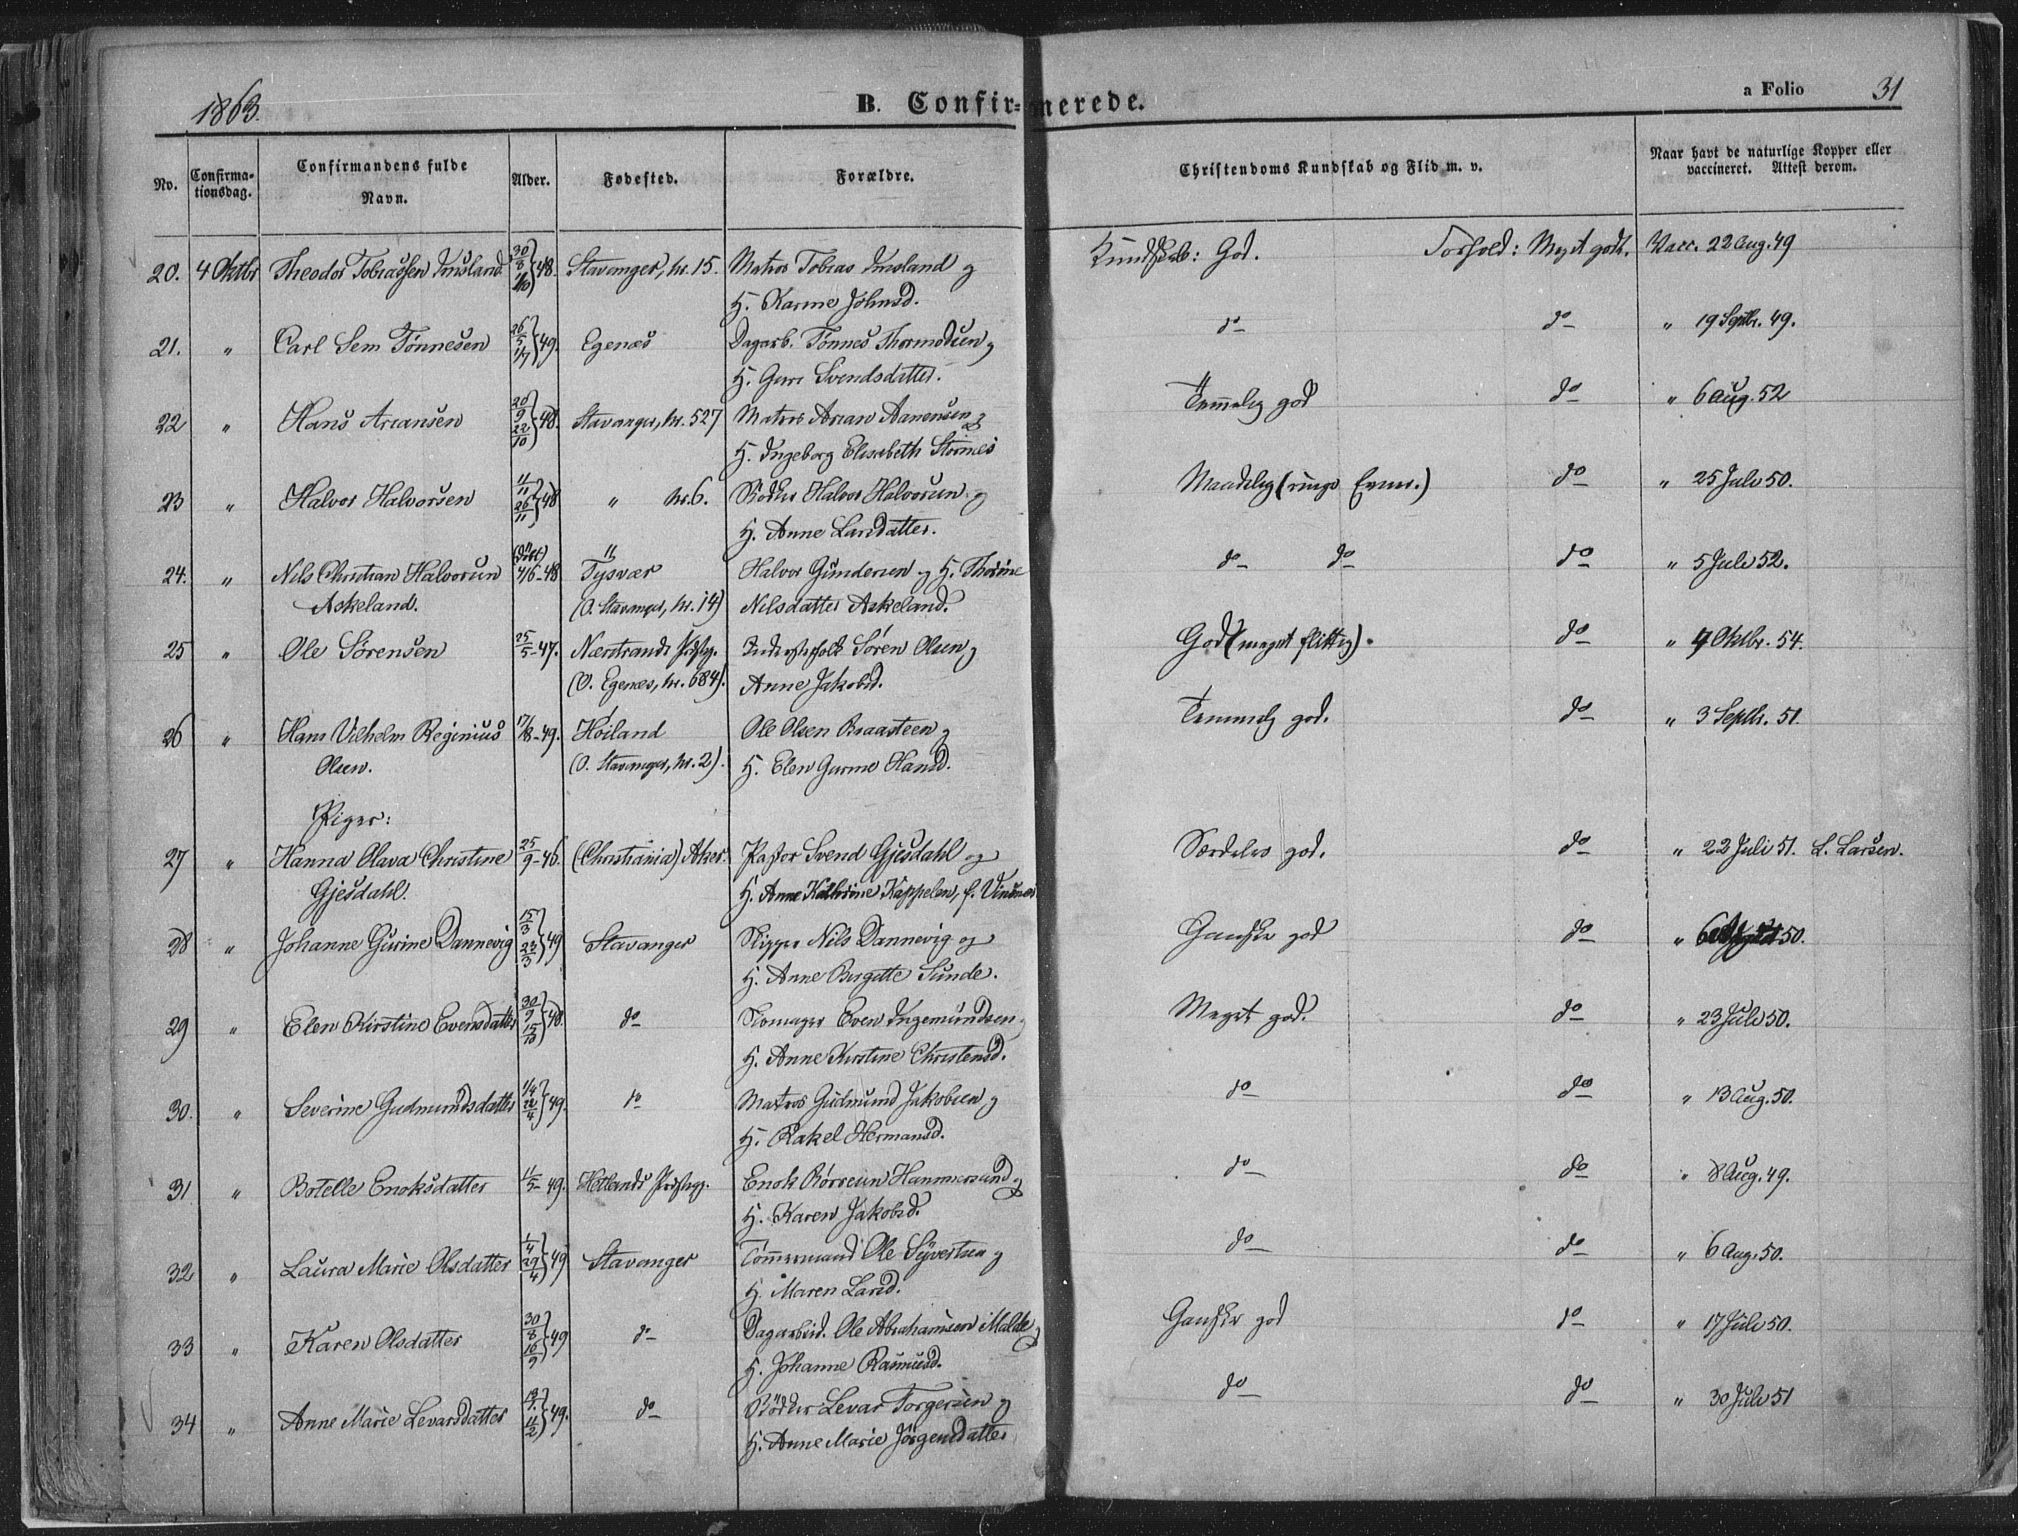 1863.
B. Confirmerede.
a Folio 31
No. Confirmationsdag. Confirmandens fulde Navn. Alder. Fødested. Forældre. Christendoms Kundskab og Flid m. v. Naar havt de naturlige Kopper eller vaccineret. Attest derom.
20. 4 Oktbr Theodor Tobiassen 30/8 1/10 } 48. Stavanger, nr. 15. Matros Tobias og Kundskab: God. Forhold: Meget godt. Vacc. 22 Aug. 49
H. Karine Johnsd.
21. " Carl Sem Tønnesen 26/5 1/7 } 49. Egenæs Dagarb. Tønnes Thormodsen og do do " 19 Septbr. 49.
H. Guri Svendsdatter.
22 " Hans Ariansen 20/9 22/10 } 48. Stavanger, nr. 527 Matros Arian Aanensen og Temmelig god do " 6 Aug. 52
H. Ingeborg Elisabeth Stormes
23 " Halvor Halvorsen 26/11 } 48 " nr. 6. Bødker Halvor Halvorsen og Maadelig (ringe Evner.) do " 25 Juli 50.
H. Anne Larsdatter.
24. " Nils Christian Halvorsen 4/6-48 Tysvær Halvor Gundersen og H. Thorine do do do " 5 Juli 52.
Askeland. (O. Stavanger, nr. 14) Nilsdatter Askeland.
25 " Ole Sørensen 25/5-47. Nærstrands Præstegj. Inderstefolk Søren Olsen og God (meget flittig). do " 7 Oktbr. 54.
(O. Egenæs, nr. 684). Anne Jakobsd.
26 " Hans Vilhelm Reginius 17/8-49. Høiland Ole Olsen Braasteen og Temmelig god. do " 3 Septbr. 51.
Olsen. (O. Stavanger, nr. 2). H. Elen Gurine Hansd.
Piger:
27 " Hanna Olava Christine 25/9-46. (Christiania) Aker. Pastor Svend Gjesdahl og Særdeles god. do " 22 Juli 51. L. Larsen.
Gjesdahl. H. Anne Kathrine Kappelen, f. Vinsnes
28 " Johanne Gurine Dannevig 15/3 23/3 } 49 Stavanger Skipper Nils Dannevig og Ganske god do " 50.
H. Anne Birgitte Sunde.
29 " Elen Kirstine Evensdatter 30/9 15/10 } 48. do Skomager Even Ingemundsen og Meget god. do " 23 Juli 50.
H. Anne Kirstine Christensd.
30. " Severine Gudmundsdatter 1/4 22/4 } 49. do Matros Gudmund Jakobsen og do do " 13 Aug. 50.
H. Rakel Hermansd.
31 " Botelle Enoksdatter 11/5-49. Hetlands Præstegj. Enok Børresen Hammersand og do do " 8 Aug. 49.
H. Karen Jakobsd.
32 " Laura Marie Olsdatter 1/4 29/4 } 49 Stavanger Tømmermand Ole Syvertsen og do do " 6 Aug. 50.
H. Maren Larsd.
33 " Karen Olsdatter 30/8 16/9 } 49 do Dagarbeid. Ole Abrahamsen Malde og Ganske god do " 17 Juli 50.
H. Johanne Rasmusd.
34 " Anne Marie Levardsdatter 11/2 } 49. do Bødker Levar Torgersen og do do " 30 Juli 51
H. Anne Marie Jørgensdatter